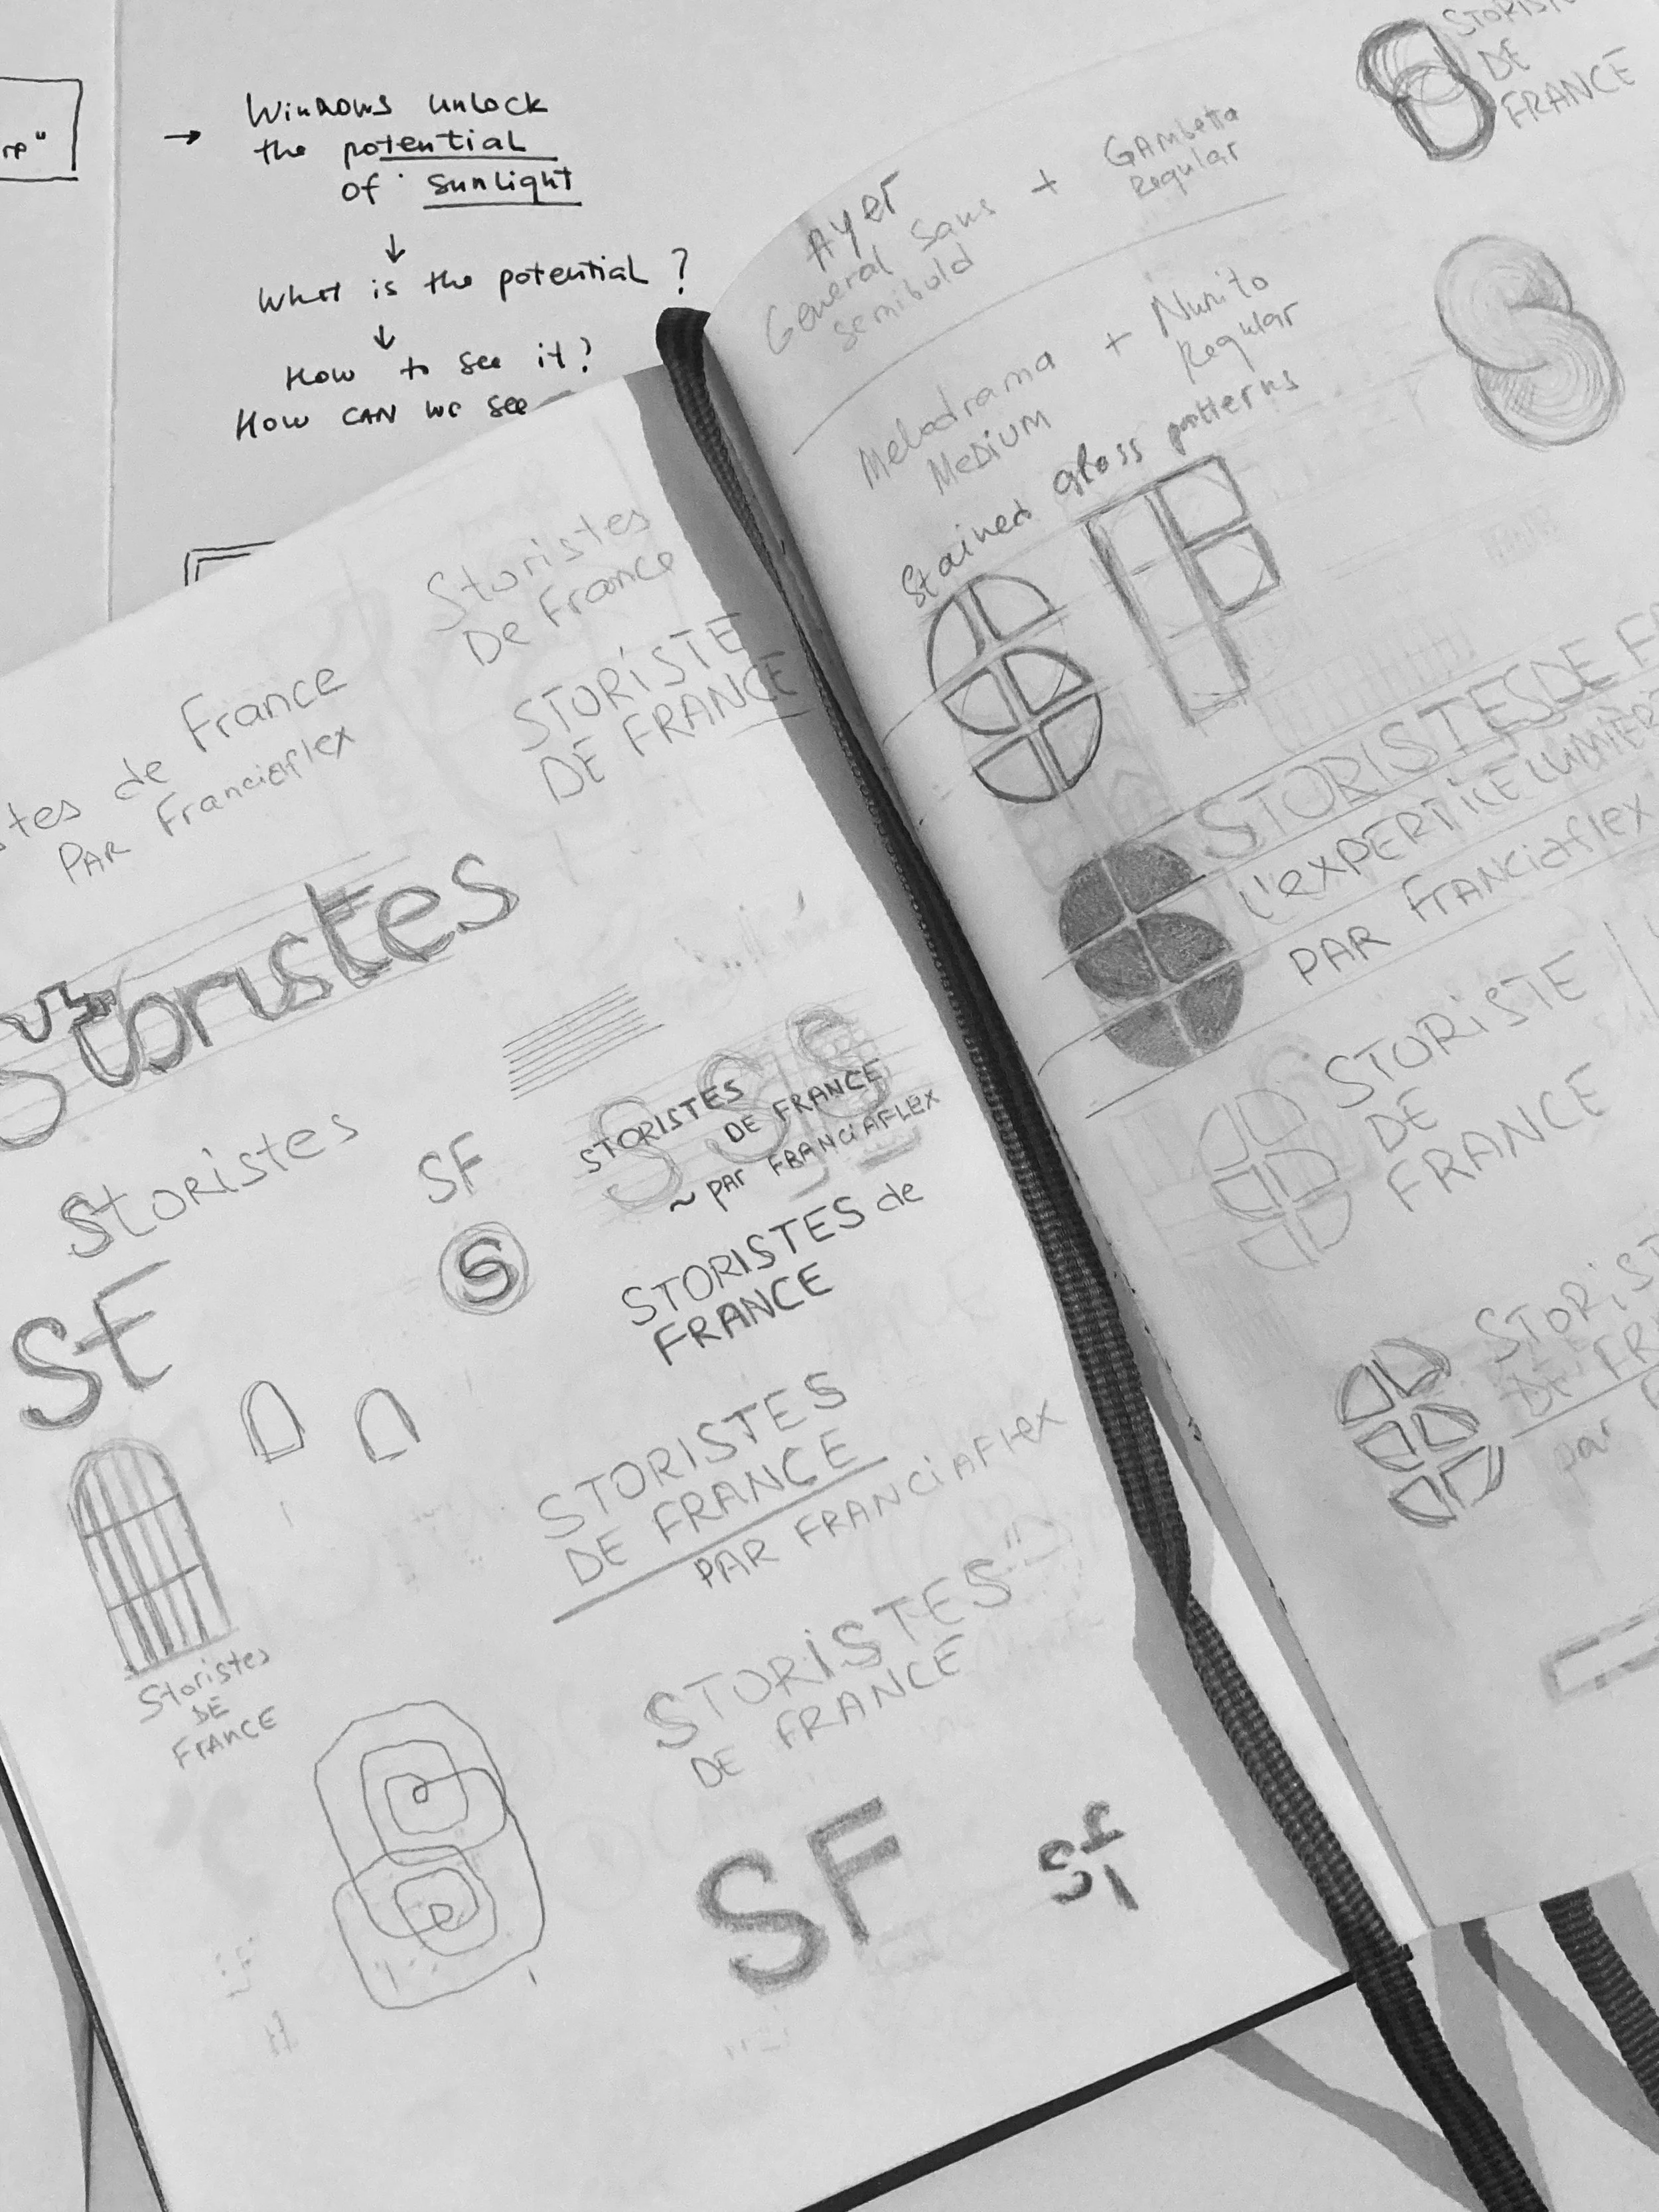 Windows unlock
the potential
of sunlight
What is the potential?
How to see it?
How can we see
Storistes
De France
STORISTE
DE FRANCE
de France
PAR Franciaflex
Storistes
Storistes
SF
S
STORISTES
DE FRANCE
~ PAR FRANCIAFLEX
STORISTES de
FRANCE
SF
STORISTES
DE FRANCE
PAR FRANCiAFLEX
Storistes
DE
FRANCE
STORiSTES
DE FRANCE
SF
sf
DE
FRANCE
Ayer
General Sans + GAMbetta
Semibold Regular
Melodrama + Nunito
MEDIUM Regular
Stained glass patterns
SF
STORISTES DE
L'EXPERTICE
PAR FRANCiaflex
STORISTE
DE
FRANCE
par